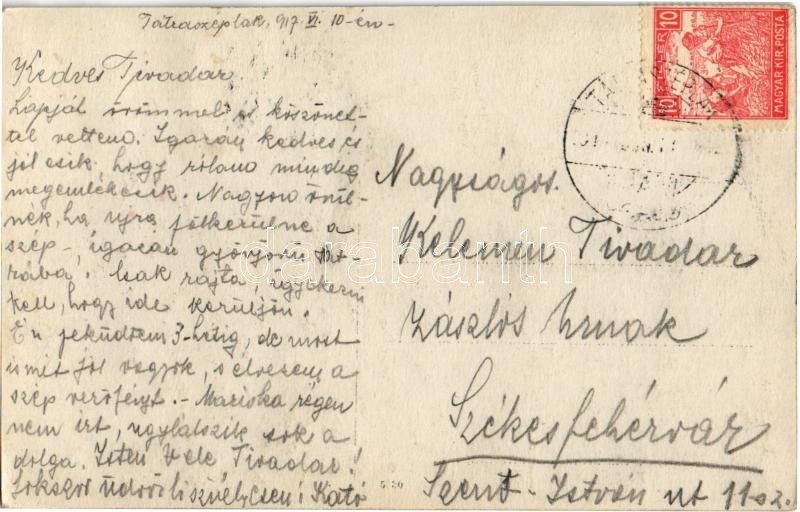 Tátraszéplak, 917 VI. 10-én-
Kedves Tivadar
Lapját örömmel és köszönet-
tel vettem. Igazán kedves és
jól esik, hogy rólam mindig
megemlékezik. Nagyon örül-
nék, ha ujra fölkerülne a
szép-, igazán gyönyörű Tát-
rába. Csak rajta, ügyeskedni
kell, hogy ide kerüljön.
Én feküdtem 3 hétig, de most
ismét jól vagyok, s élvezem a
szép verőfényt. - Mariska régen
nem írt, ugylátszik sok a
dolga. Isten Vele Tivadar!
Sokszor üdvözli szívélyesen: Kató
10 FILLÉR 10
MAGYAR KIR. POSTA
TÁTRASZÉPLAK
Nagyságos
Kelemen Tivadar
zászlós úrnak
Székesfehérvár
Szent-István ut 11 sz.
darabanth.com